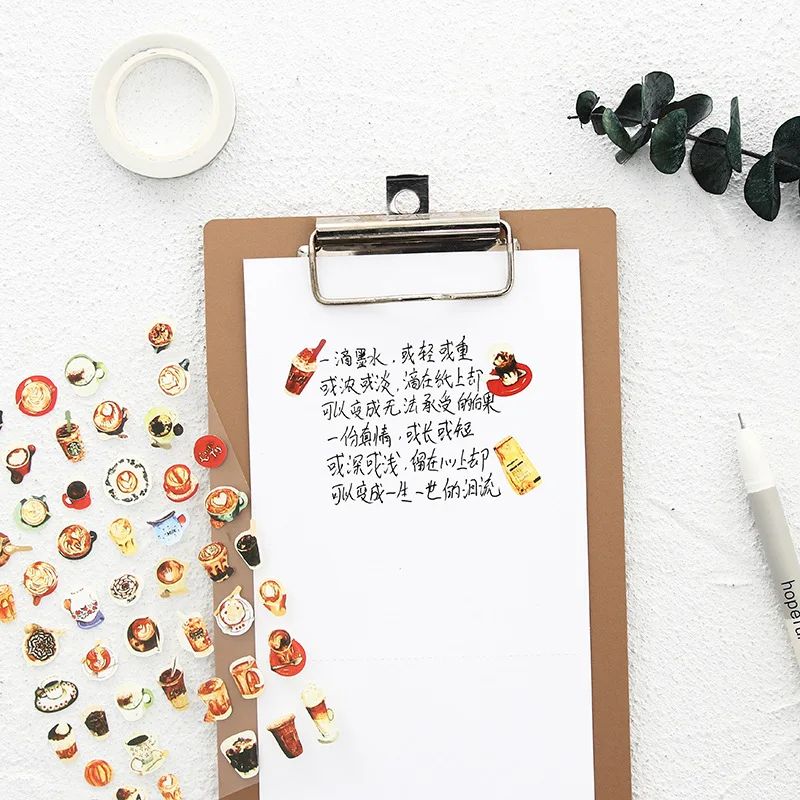 一滴墨水，或轻或重
或浓或淡，滴在纸上却
可以变成无法承受的后果
一份真情，或长或短
或深或浅，留在心上却
可以变成一生一世的泪流
hopeful